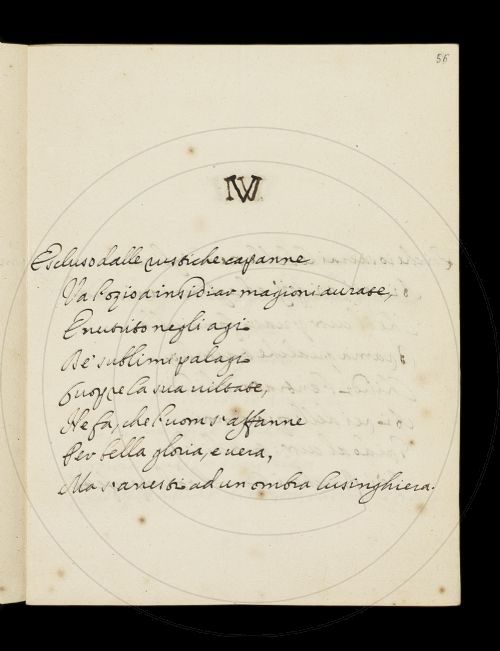 56
IV
Escluso dalle rustiche capanne
Va l'ozio a insidiar magioni aurate,
E nutrito negli agi
De' sublimi palagi
Cuopre la sua viltate,
Ne fa, che l'uom s'affanne
Per bella gloria, e vera,
Ma s'arresti ad un ombra lusinghiera.